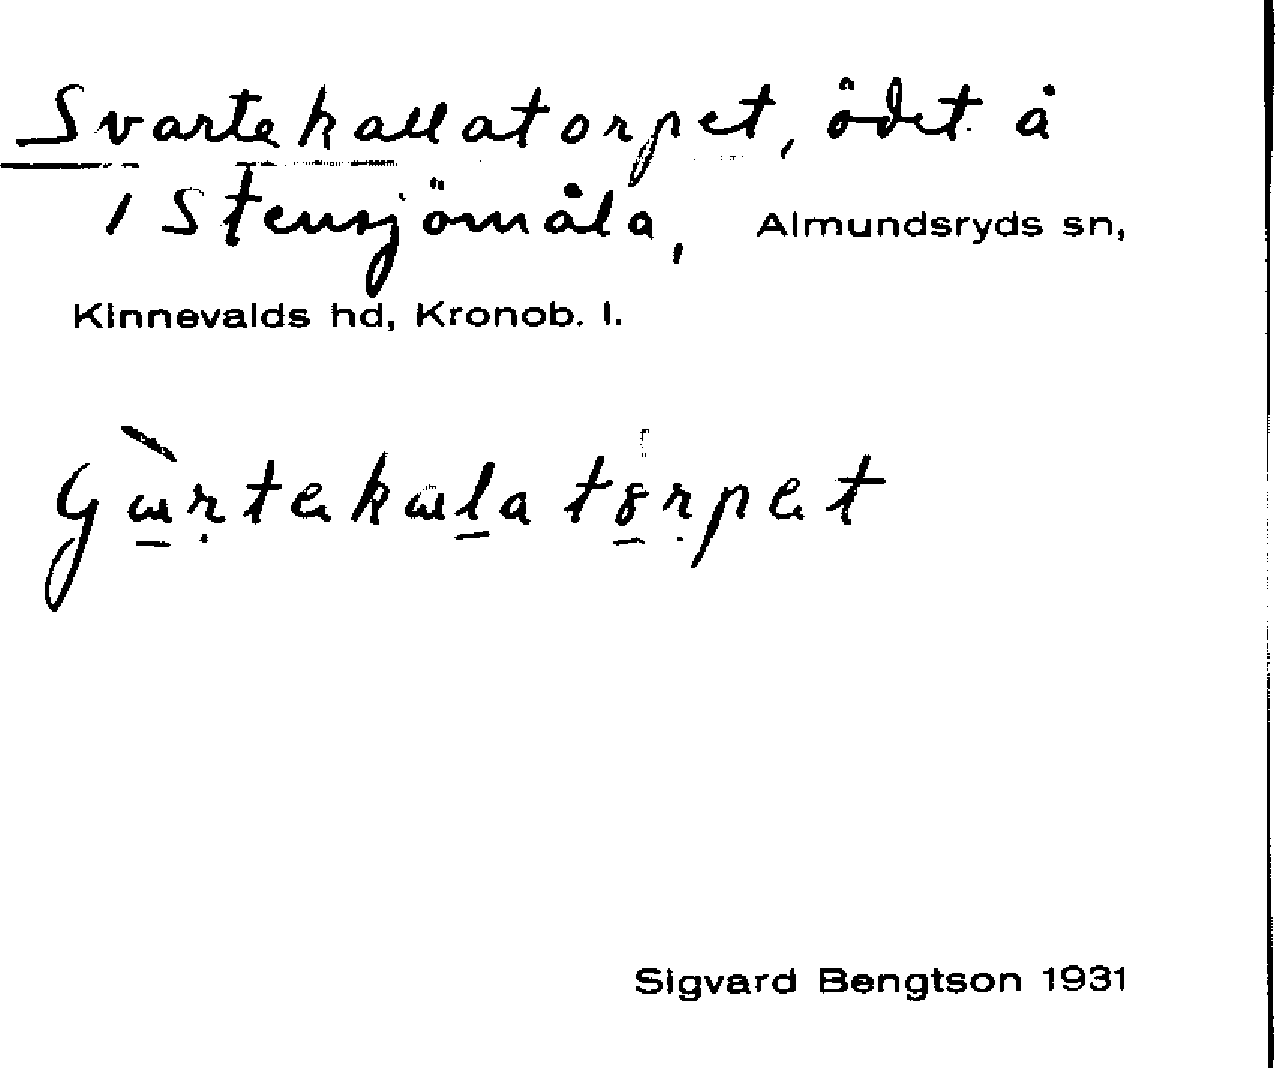 Svartekallatorpet, ödet å
1 Stensjömåla, Almundsryds sn,
Kinnevalds hd, Kronob. l.
Sigvard Bengtson 1931